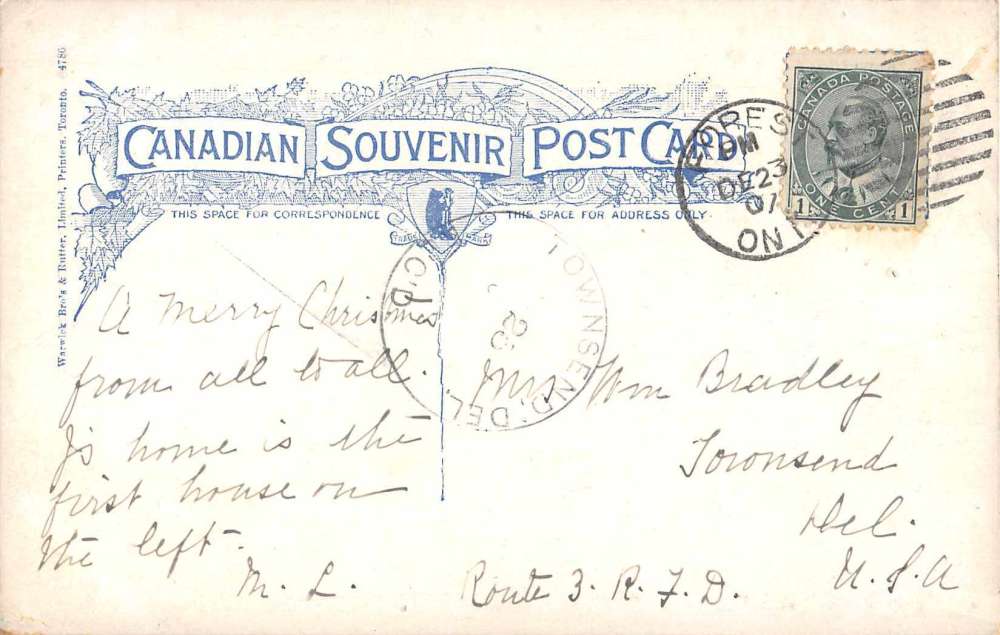 Warwick Bro's & Rutter, Limited, Printers, Toronto. 4786
CANADIAN SOUVENIR POST CARD
THIS SPACE FOR CORRESPONDENCE
THIS SPACE FOR ADDRESS ONLY
TRADE MARK
FOREST
PM
DE 23
07
ONT
CANADA POSTAGE
1 ONE CENT 1
TOWNSEND, DEL.
REC'D
A Merry Christmas
from all to all.
J's home is the
first house on
the left-
M. L.
Mrs Wm Bradley
Townsend
Del.
U.S.A
Route 3. R. F. D.